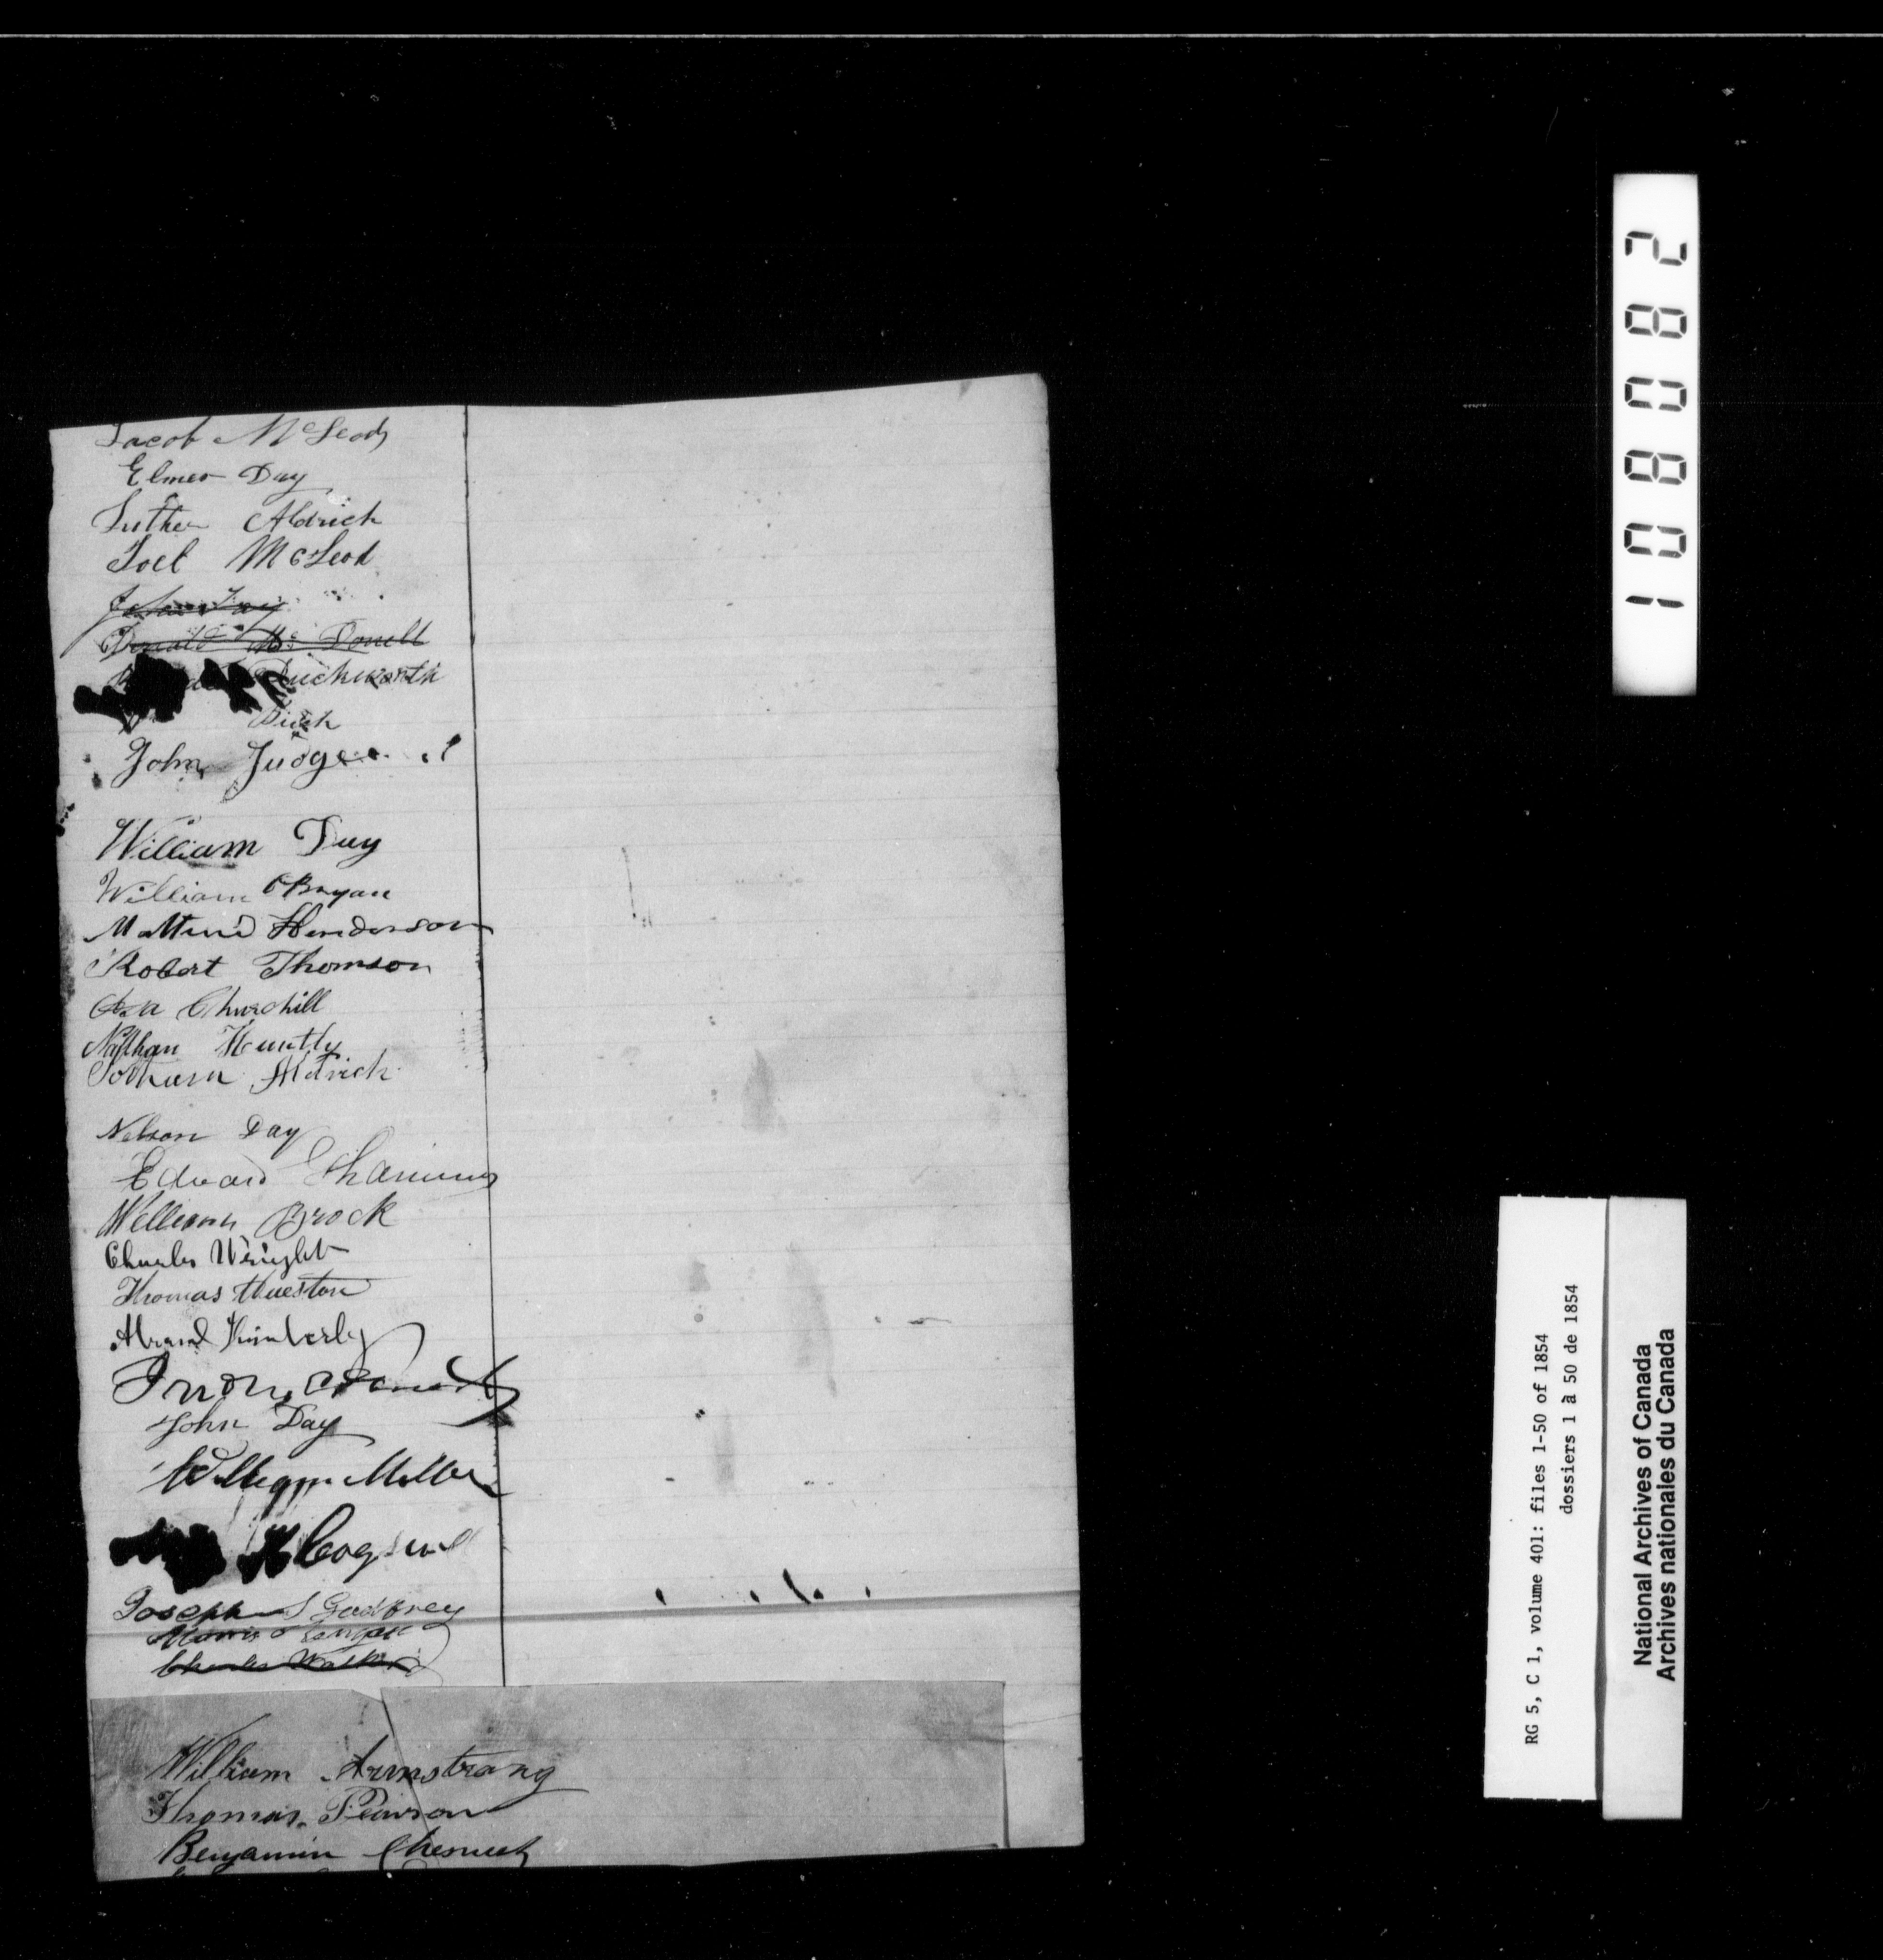 Jacob McLeod
Elmer Day
Luther Aldrich
Joel McLeod
Donald Mc Donell
Duckworth
John Judge
William Day
William OBryan
Henderson
Robert Thomson
Asa Churchill
Nathan Huntly
Aldrich
Nelson Day
Edward
William Brock
Charles Wright
Thomas Hueston
Kimberly
John Day
William Miller
Joseph S Godfrey
Charles Walker
William Armstrong
Thomas Pearson
Benjamin Chesnut
108082
RG 5, C 1, volume 401: files 1-50 of 1854
dossiers 1 à 50 de 1854
National Archives of Canada
Archives nationales du Canada